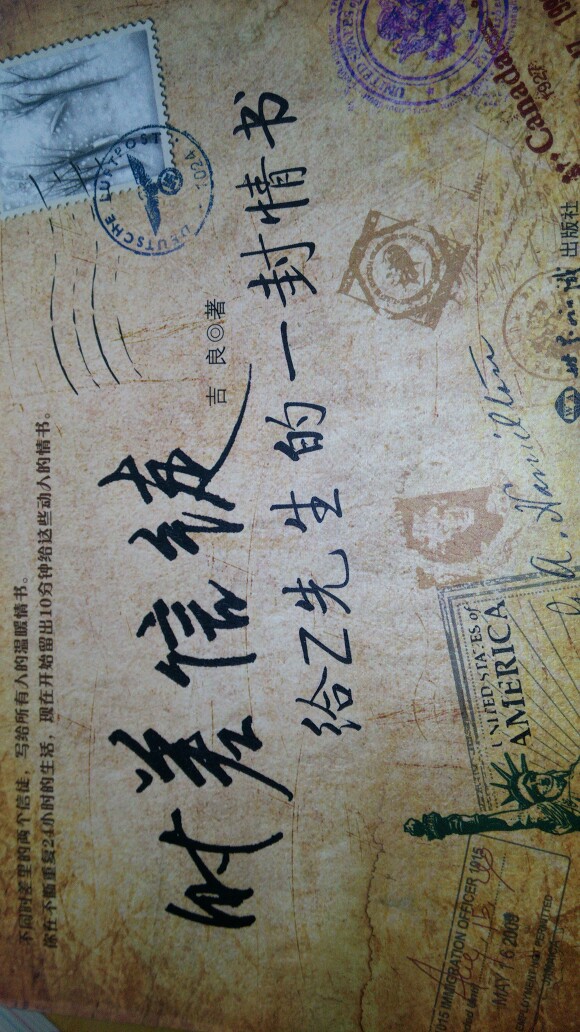 不同时差里的两个信徒，写给所有人的温暖情书。
你在不断重复24小时的生活，现在开始留出10分钟给这些动人的情书。
DEUTSCHE LUFTPOST
1024
时差信徒
吉 良◎著
给Z先生的一封情书
UNITED STATES
Canada
1928
NINE
UNITED STATES of
AMERICA
A. Hamilton
015 IMMIGRATION OFFICER 1015
MAY 16 2009
EMPLOYMENT NOT PERMITTED
世界知识出版社